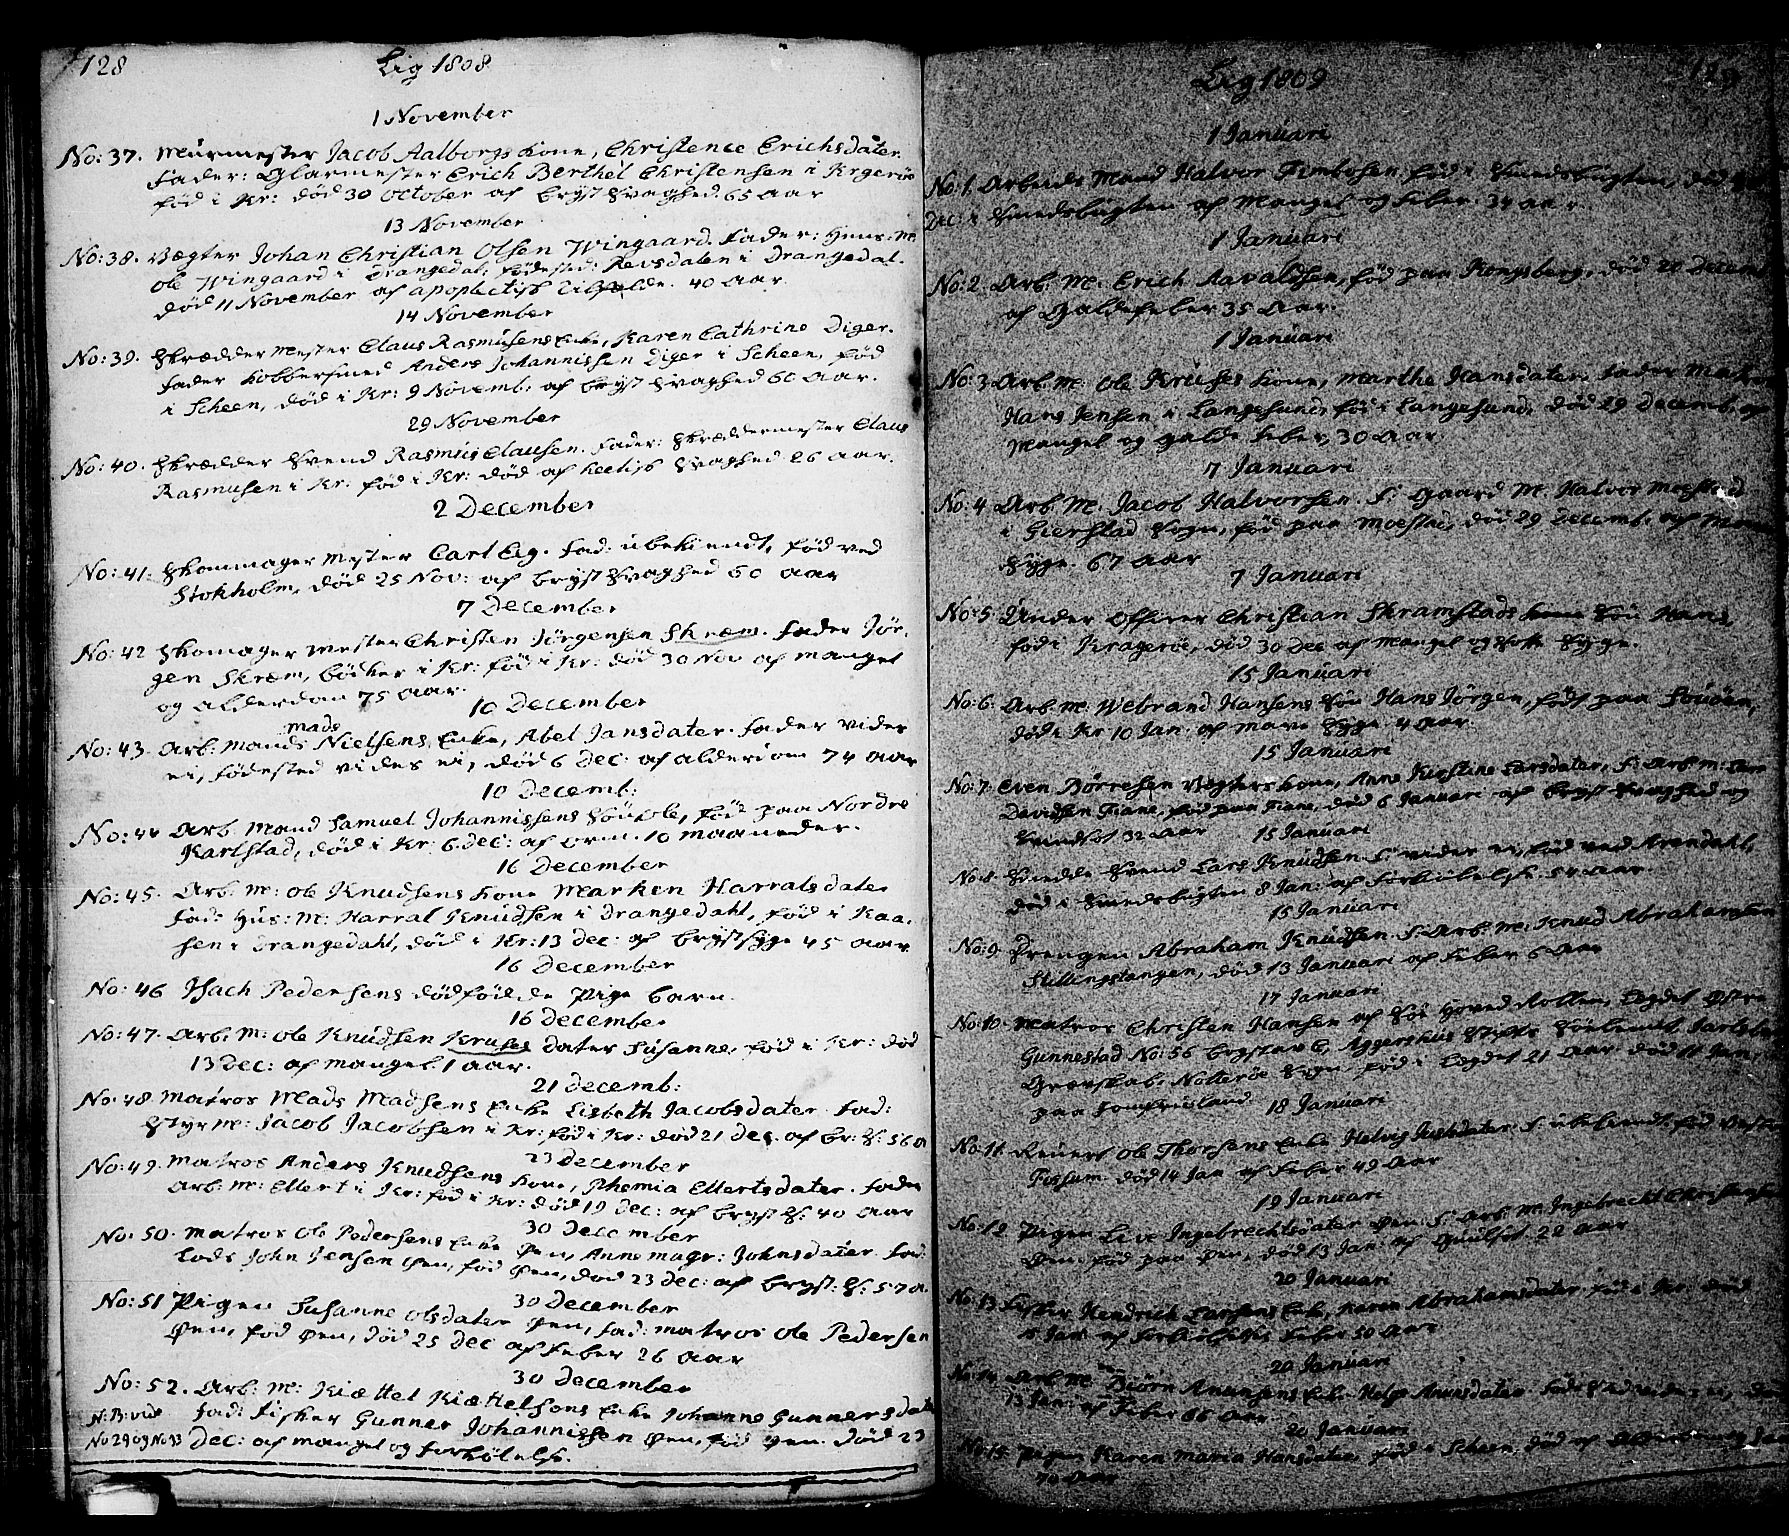 128
Lig 1808
1 November
No: 37. Murmester Jacob Aalborgs Kone, Christence Erichsdater.
Fader: Glarmester Erich Berthel Christensen i Krgerøe
fød i Kr: død 30 October af bryst Svaghed 65 Aar
13 November
No: 38. Vægter Johan Christian Olsen Wingaard. Fader: Huus: M:
Ole Wingaard i Drangedal. fødested: Revsdalen i Drangedal.
død 11 November af apoplectisk Tilfælde. 40 Aar.
14 November
No: 39. Skrædder Mester Claus Rasmusens Enke, Karen Cathrine Diger.
Fader Kobbersmed Anders Johannissen Diger i Scheen, fød
i Scheen, død i Kr: 9 Novemb: af bryst Svaghed 60 Aar.
29 November
No: 40. Skrædder Svend Rasmus Clausen. Fader: Skræddermester Claus
Rasmusen i Kr: fød i Kr: død af hectisk Svaghed 26 Aar.
2 December
No: 41. Skomager Mester Carl Eig. Fad: ubekiendt, fød ved
Stokholm, død 25 Nov: af bryst Svaghed 60 Aar
7 December
No: 42 Skomager Mester Christen Jørgensen Skræm. Fader Jør-
gen Skræm, bødker i Kr: fød i Kr: død 30 Nov af mangel
og Alderdom 75 Aar.
10 December
No: 43. Arb: Mands Mads Nielsens Enke, Abel Jansdater. Fader vides
ei, fødested vides ei, død 6 Dec: af alderdom 74 Aar
10 Decemb:
No: 44 Arb. Mand Samuel Johannissens Søn Ole, fød paa Nordre
Karlstad, død i Kr: 6 Dec: af orm. 10 maaneder.
16 December
No: 45. Arb: M: Ole Knudsens Kone Marken Harralsdater
Fad: Huus: M: Harral Knudsen i Drangedahl, fød i Kaa-
sen i Drangedahl, død i Kr: 13 Dec: af brystsyge 45 Aar
16 December
No: 46 Isach Pedersens dødfødde Pige barn.
16 December
No: 47. Arb: M: Ole Knudsen Kruses dater Susanne, fød i Kr: død
13 Dec: af mangel. 1 Aar.
21 Decemb:
No: 48 Matros Mads Madsens Enke Lisbeth Jacobsdater. Fad:
StyrM: Jacob Jacobsen i Kr: fød i Kr: død 21 Dec. af br: S: 56 A
23 December
No: 49. Matros Anders Knudsens Kone, Phemia Ellertsdater. Fader
Arb: M: Ellert i Kr: fød i Kr: død 19 Dec: af bryst S: 40 Aar
30 December
No: 50. Matros Ole Pedersens Enke Øen, Anne Magr: Johnsdater. Fad:
Lods John Jensen Øen, fød Øen, død 23 Dec: af bryst: S: 57 A.
30 December
No: 51 Pigen Susanne Olsdater Øen, Fad: Matros Ole Pedersen
Øen, fød Øen, død 25 Dec af Feber 26 Aar
30 December
No: 52. Arb: M: Kiættel Kiættelsøns Enke Johanne Gunnersdater
N:B: vide Fad: Fisker Gunner Johannissen Øen, fød Øen. død 23
No 29 og No 33 Dec: af mangel og Forkølelse.
Lig 1809
1 Januari
No: 1. Arbeids Mand Halvor Timbosen fød i Smedsbugten, død
Dec: i Smedsbugten af Mangel og Feber. 34 Aar.
1 Januari
No: 2. Arb: M. Erich Aavaldsen, fød paa Kongsberg, død 20 Decemb
af Galdefeber 35 Aar.
1 Januari
No: 3 Arb: M. Ole Kruses Kone, Marthe Hansdater. Fader Matros
Hans Jensen i Langesund, fød i Langesund, død 29 Decemb: af
Mangel og galde Feber, 30 Aar.
7 Januari
No: 4 Arb. M. Jacob Halvorsen. F: Gaard M. Halvor Moestad
i Gierstad Sogn, fød paa Moestad, død 29 Decemb: af
Syge. 67 Aar
7 Januari
No: 5 Under Officer Christian Skramstads Søn Hans,
fød i Kragerøe, død 30 Dec af Mangel og Syge.
15 Januari
No: 6. Arb M. Webrand Hansens Søn Hans Jørgen, født paa
død i Kr 10 Jan: af Syge 4 Aar.
15 Januari
No: 7. Even Børresen Vægters Kone, Anne Kirstine Larsdater, F: Arb: M: Lars
Davidsen Tiane, fød paa Tiane, død 6 Januari af bryst Svaghed og
Svindsot 32 Aar
15 Januari
No: 8. Smedde Svend Lars Knudsen F: vides ei, fød ved Arendahl,
død i Smedsbugten 8 Jan: af Forkiølelse. 54 Aar.
15 Januari
No: 9. Drengen Abraham Knudsen. F: Arb: M: Knud Abrahamsen
Stillingstangen, død 13 Januari af Feber 6 Aar
17 Januari
No: 10. Matros Christen Hansen af Søe Hoved Rollen, Lægdet Østre
Gunnestad No: 56 bogstav C, Aggershus Stifts Søelemit, Jarlsberg
Grevskab. Notterøe Sogn, fød i Lægdet 21 Aar død 11 Jan:
paa Jomfrueland
18 Januari
No: 11. Ole Thorsens Enke Helvig F: ubekiendt, fød
Fossum død 14 Jan af Feber 49 Aar
19 Januari
No: 12. Pigen Live Ingebrechtsdater Øen. F: Arb: M: Ingebrecht Christensen
Øen. fød paa Øen, død 13 Jan: af Guulsot 22 Aar
20 Januari
No: 13 Fisker Hendrich Larsens Enke, Karen Abrahamsdater, fød i Kr: død
15 Jan: af Forkiølelse Feber 50 Aar
20 Januari
No: 14 Arb M. Biørn Amunsens Enke Helge Amunsdater
13 Jan: af Feber 66 Aar.
20 Januari
No: 15. Pigen Karen Maria Hansdater, fød i Scheen, død af
70 Aar